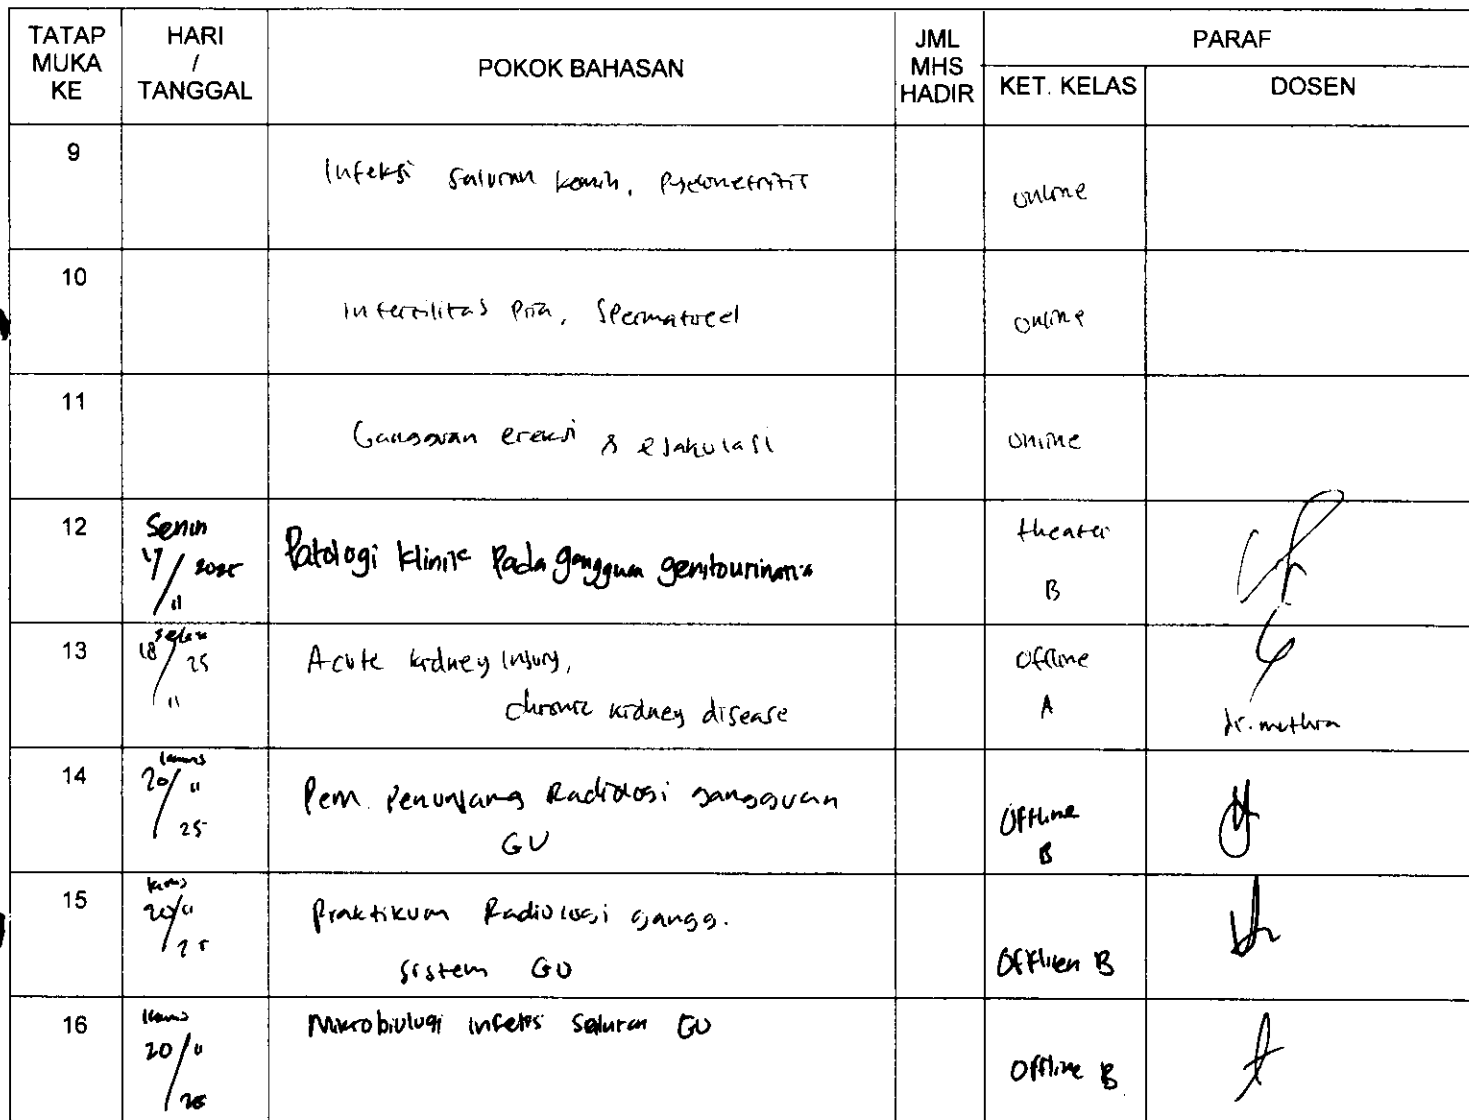 TATAP MUKA KE
HARI / TANGGAL
POKOK BAHASAN
JML MHS HADIR
PARAF
KET. KELAS
DOSEN
9
Infeksi saluran kemih,
online
10
Infertilitas Pria, Spermatocel
online
11
Gangguan ereksi & ejakulasi
online
12
Senin
17/11 2025
Patologi klinik Pada gangguan genitourinaria
theater
B
13
Selasa
18/11 25
Acute kidney Injury,
chronic kidney disease
Offline
A
dr. muthia
14
kamis
20/11 25
Pem. Penunjang Radiologi gangguan
GU
Offline
B
15
kamis
20/11 25
Praktikum Radiologi gangg.
sistem GU
Offlien B
16
kamis
20/11 25
Mikrobiologi infeksi Saluran GU
Offline B